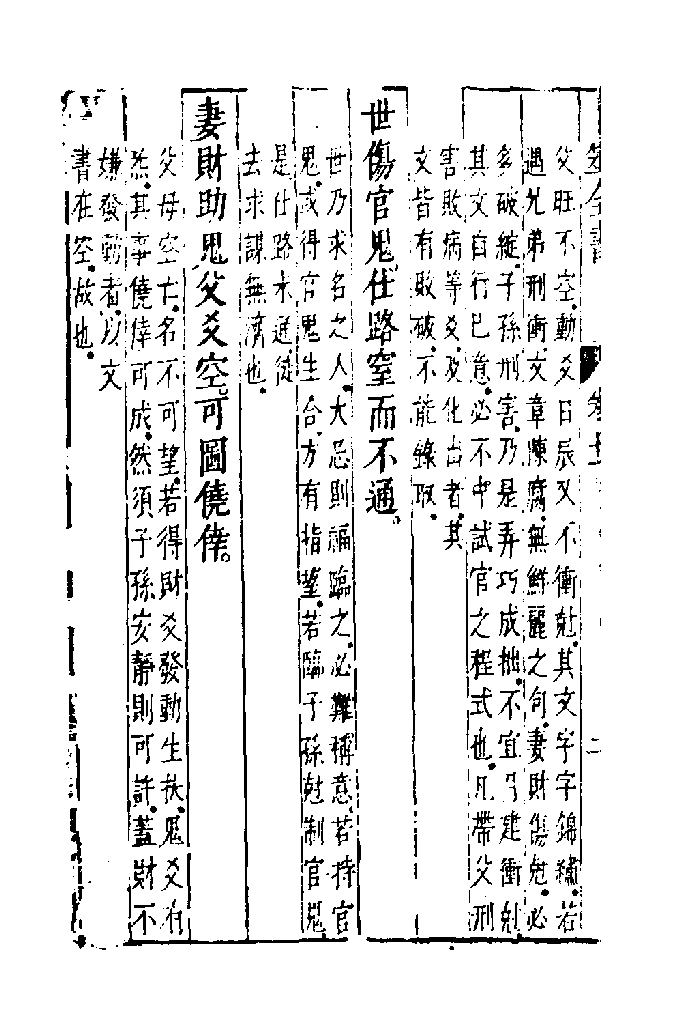 全書
父旺不空動爻日辰又不衝尅其文字字錦繡若
遇兄弟刑衝文章陳腐無鮮麗之句妻財傷尅必
多破綻子孫刑害乃是弄巧成拙不宜月建衝尅
其文自行己意必不中試官之程式也凡帶父刑
害敗病等爻及化出者其
文皆有敗破不能錄取
世傷官鬼仕路窒而不通
世乃求名之人大忌則福臨之必難稱意若持官
鬼或得官鬼生合方有指望若臨子孫尅制官鬼
是仕路未通徒
去求謀無濟也
妻財助鬼父爻空可圖僥倖
父母空亡名不可望若得財爻發動生扶鬼爻有
炁其事僥倖可成然須子孫安靜則可許蓋財不
嫌發動者以文
書在空故也